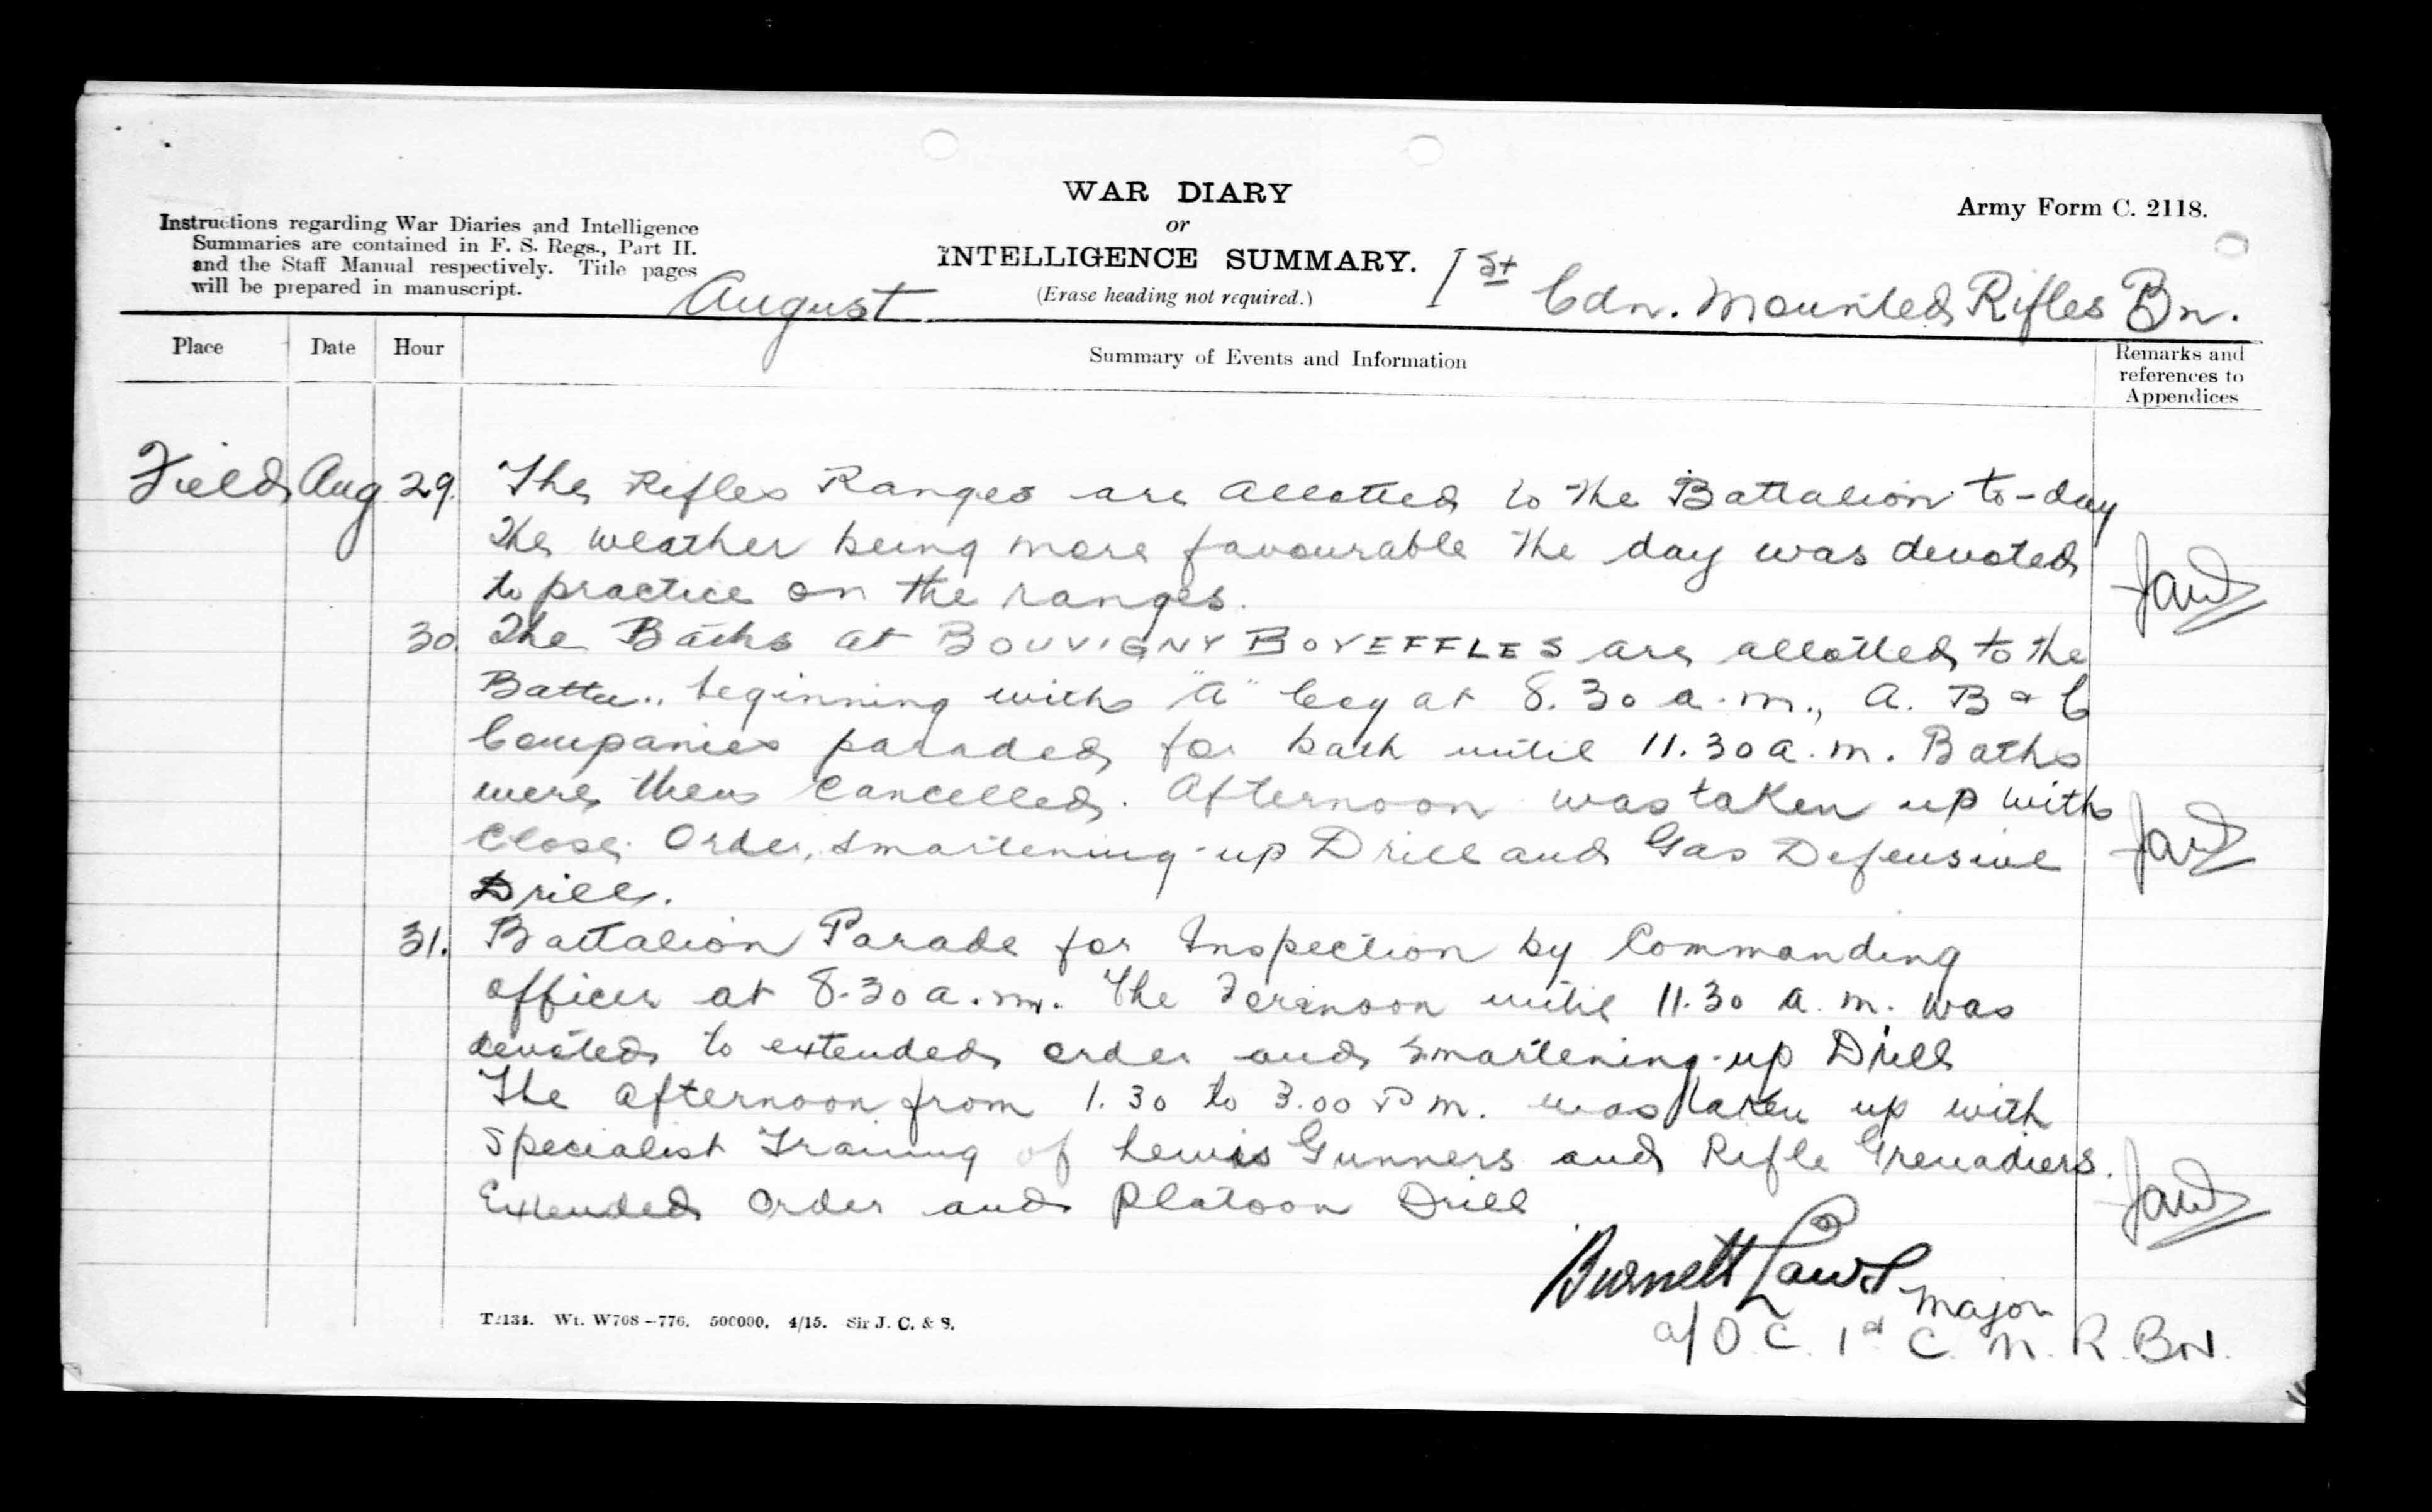 WAR DIARY
or
INTELLIGENCE SUMMARY.
(Erase heading not required.)
Army Form C. 2118.
Instructions regarding War Diaries and Intelligence
Summaries are contained in F. S. Regs., Part II.
and the Staff Manual respectively. Title pages
will be prepared in manuscript.
August
1st Cdn. Mounted Rifles Bn.
Place Date Hour Summary of Events and Information Remarks and
references to
Appendices
Field Aug 29. The Rifles Ranges are allotted to the Battalion to-day
The weather being more favourable the day was devoted
to practice on the ranges.
30. The Baths at BOUVIGNY BOYEFFLES are allotted to the
Battn., beginning with "A" Coy at 8.30 a.m., A. B & C
Companies paraded for bath until 11.30 a.m. Baths
were then cancelled. Afternoon was taken up with
Close Order, Smartening-up Drill and Gas Defensive
Drill.
31. Battalion Parade for Inspection by Commanding
Officer at 8.30 a.m. The Forenoon until 11.30 a.m. was
devoted to extended order and smartening-up Drill
The afternoon from 1.30 to 3.00 P m. was taken up with
Specialist Training of Lewis Gunners and Rifle Grenadiers.
Extended Order and Platoon Drill
Burnett Laws Major
a/O.C. 1st C. M. R. BN.
T2134. Wt. W708–776. 500000. 4/15. Sir J. C. & S.